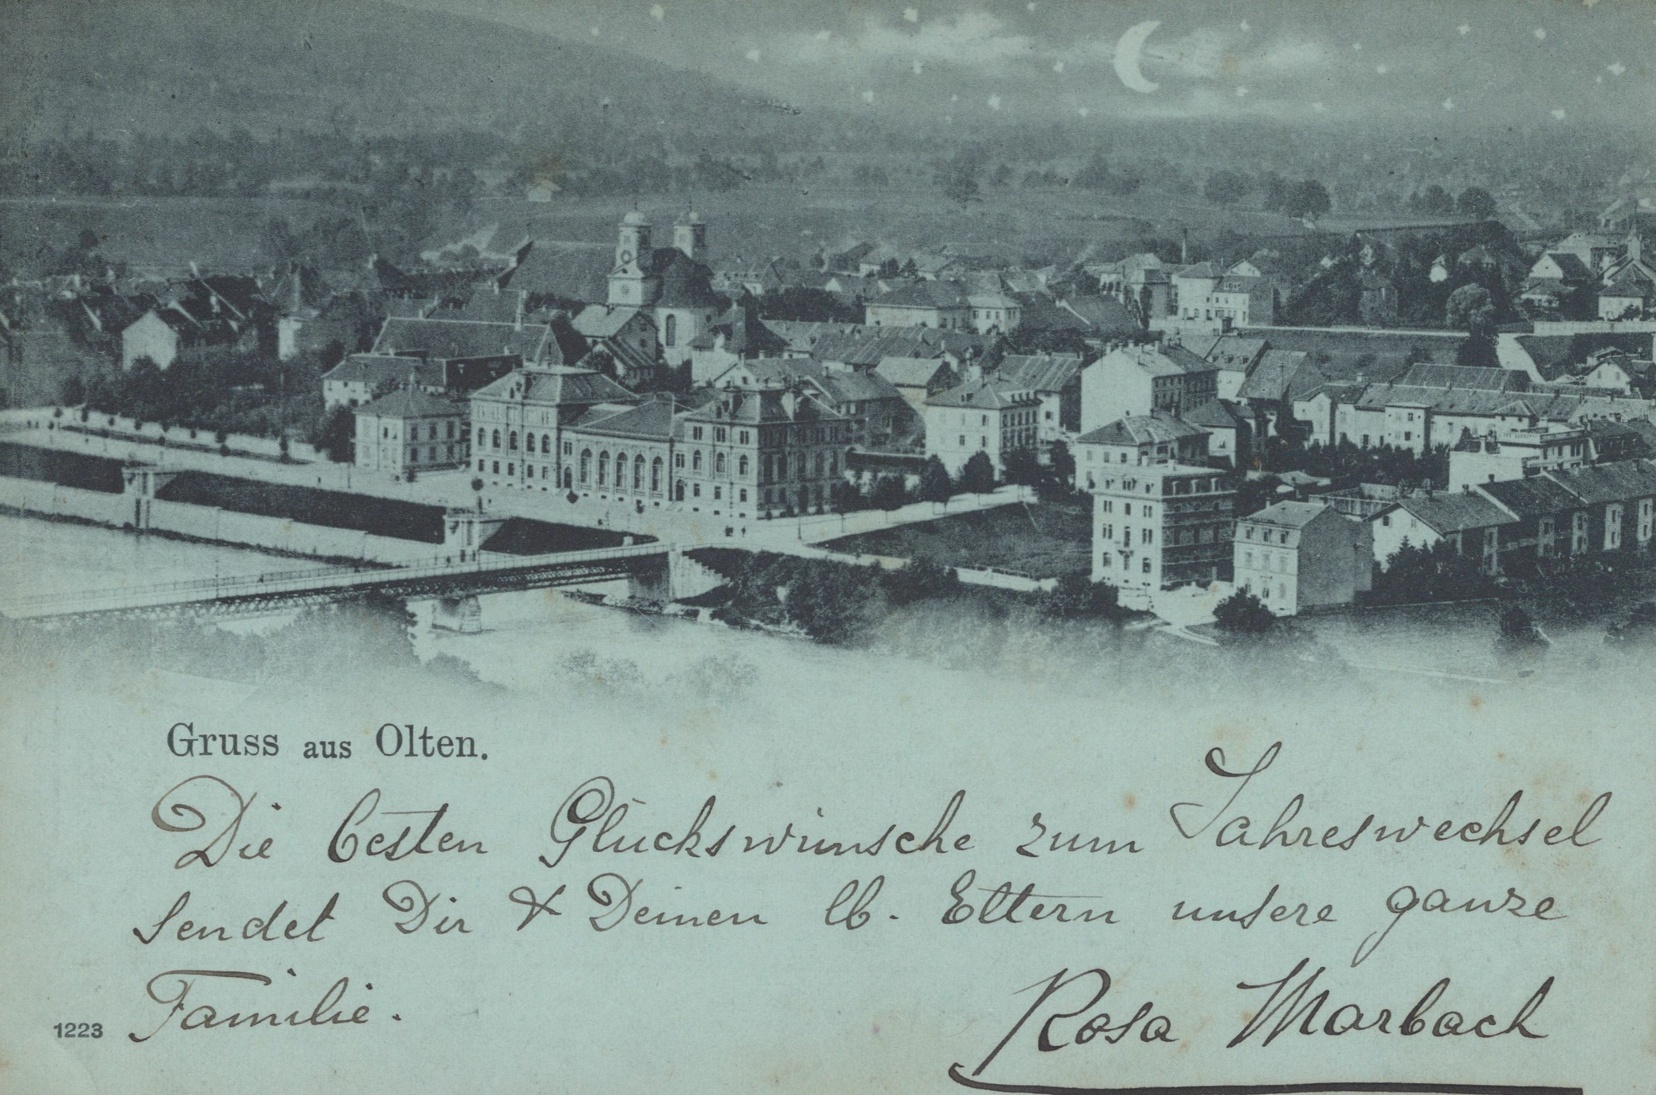 Gruss aus Olten.
Die besten Glückswünsche zum Jahreswechsel
sendet Dir & Deinen lb. Eltern unsere ganze
Familie.
1223
Rosa Marbach